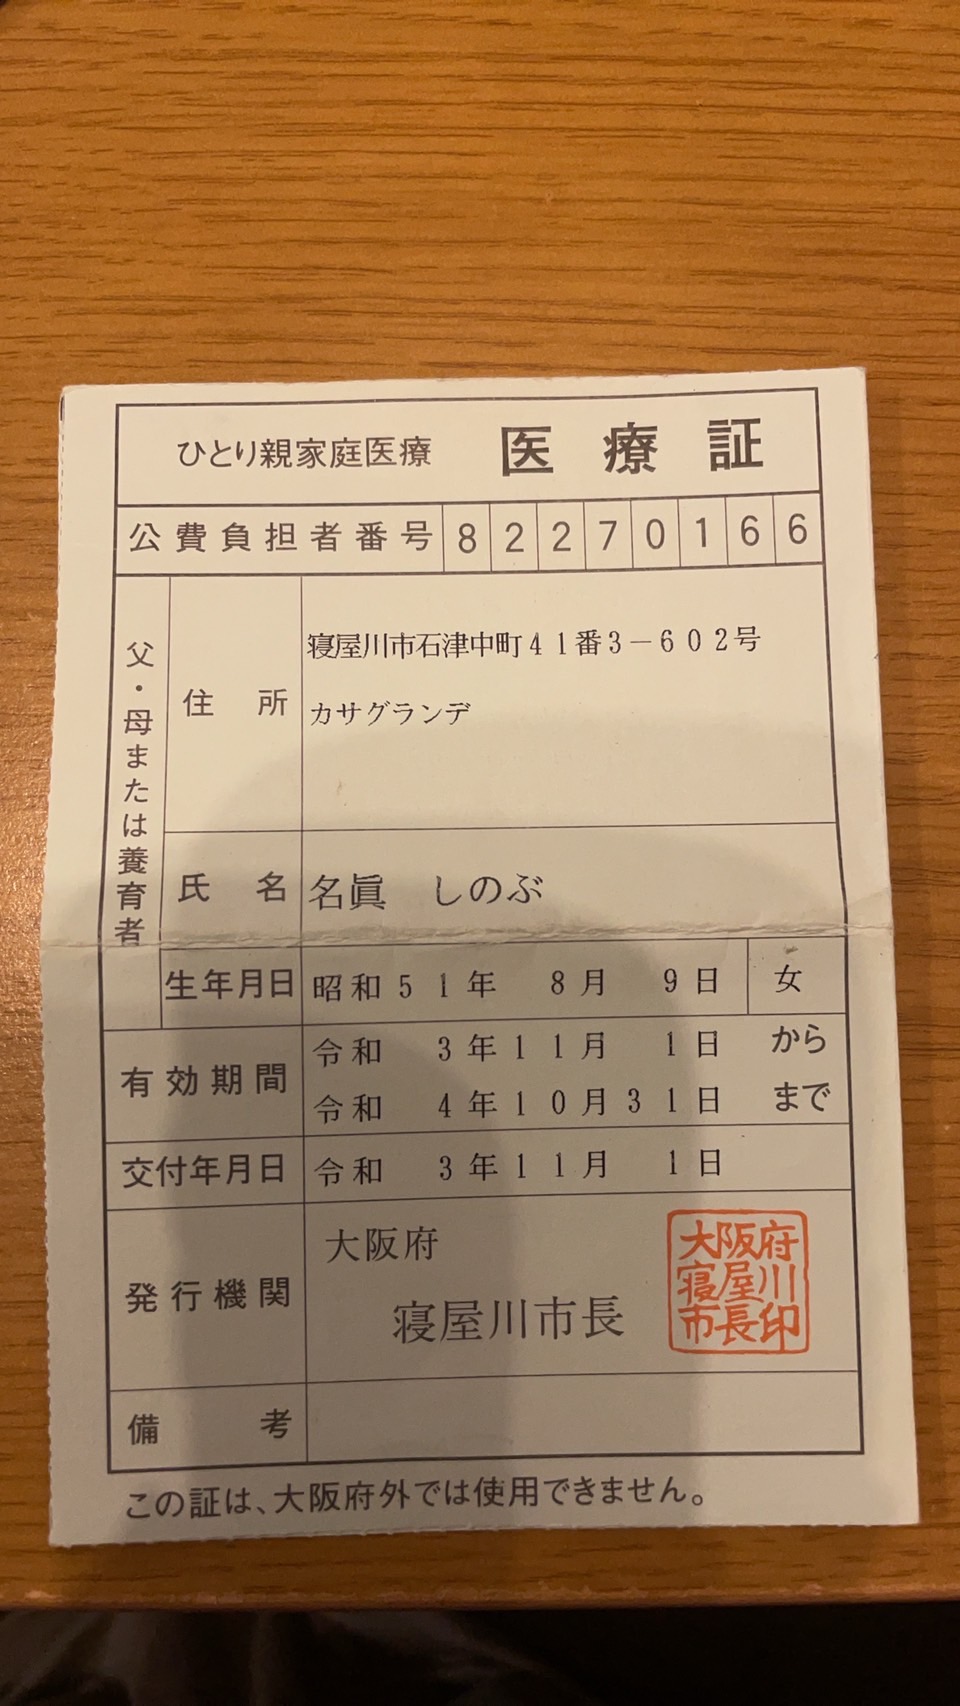 ひとり親家庭医療 医療証
公費負担者番号 82270166
父・母または養育者
住所 寝屋川市石津中町41番3－602号
カサグランデ
氏名 名眞 しのぶ
生年月日 昭和51年 8月 9日 女
有効期間 令和 3年11月 1日 から
令和 4年10月31日 まで
交付年月日 令和 3年11月 1日
発行機関 大阪府
寝屋川市長
大阪府
寝屋川
市長印
備考
この証は、大阪府外では使用できません。